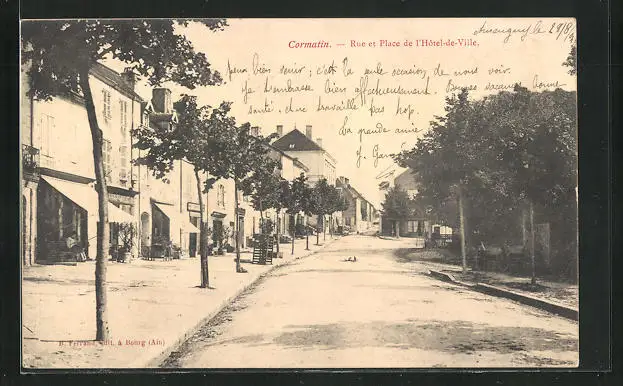 Cormatin. — Rue et Place de l'Hôtel-de-Ville.
le 29/8
bien venir; c'est la seule occasion de nous voir.
Je t'embrasse bien affectueusement
Bonnes vacances Bonne
santé, ne travaille pas trop.
La grande amie
J.
B. Ferrand, édit. à Bourg (Ain)